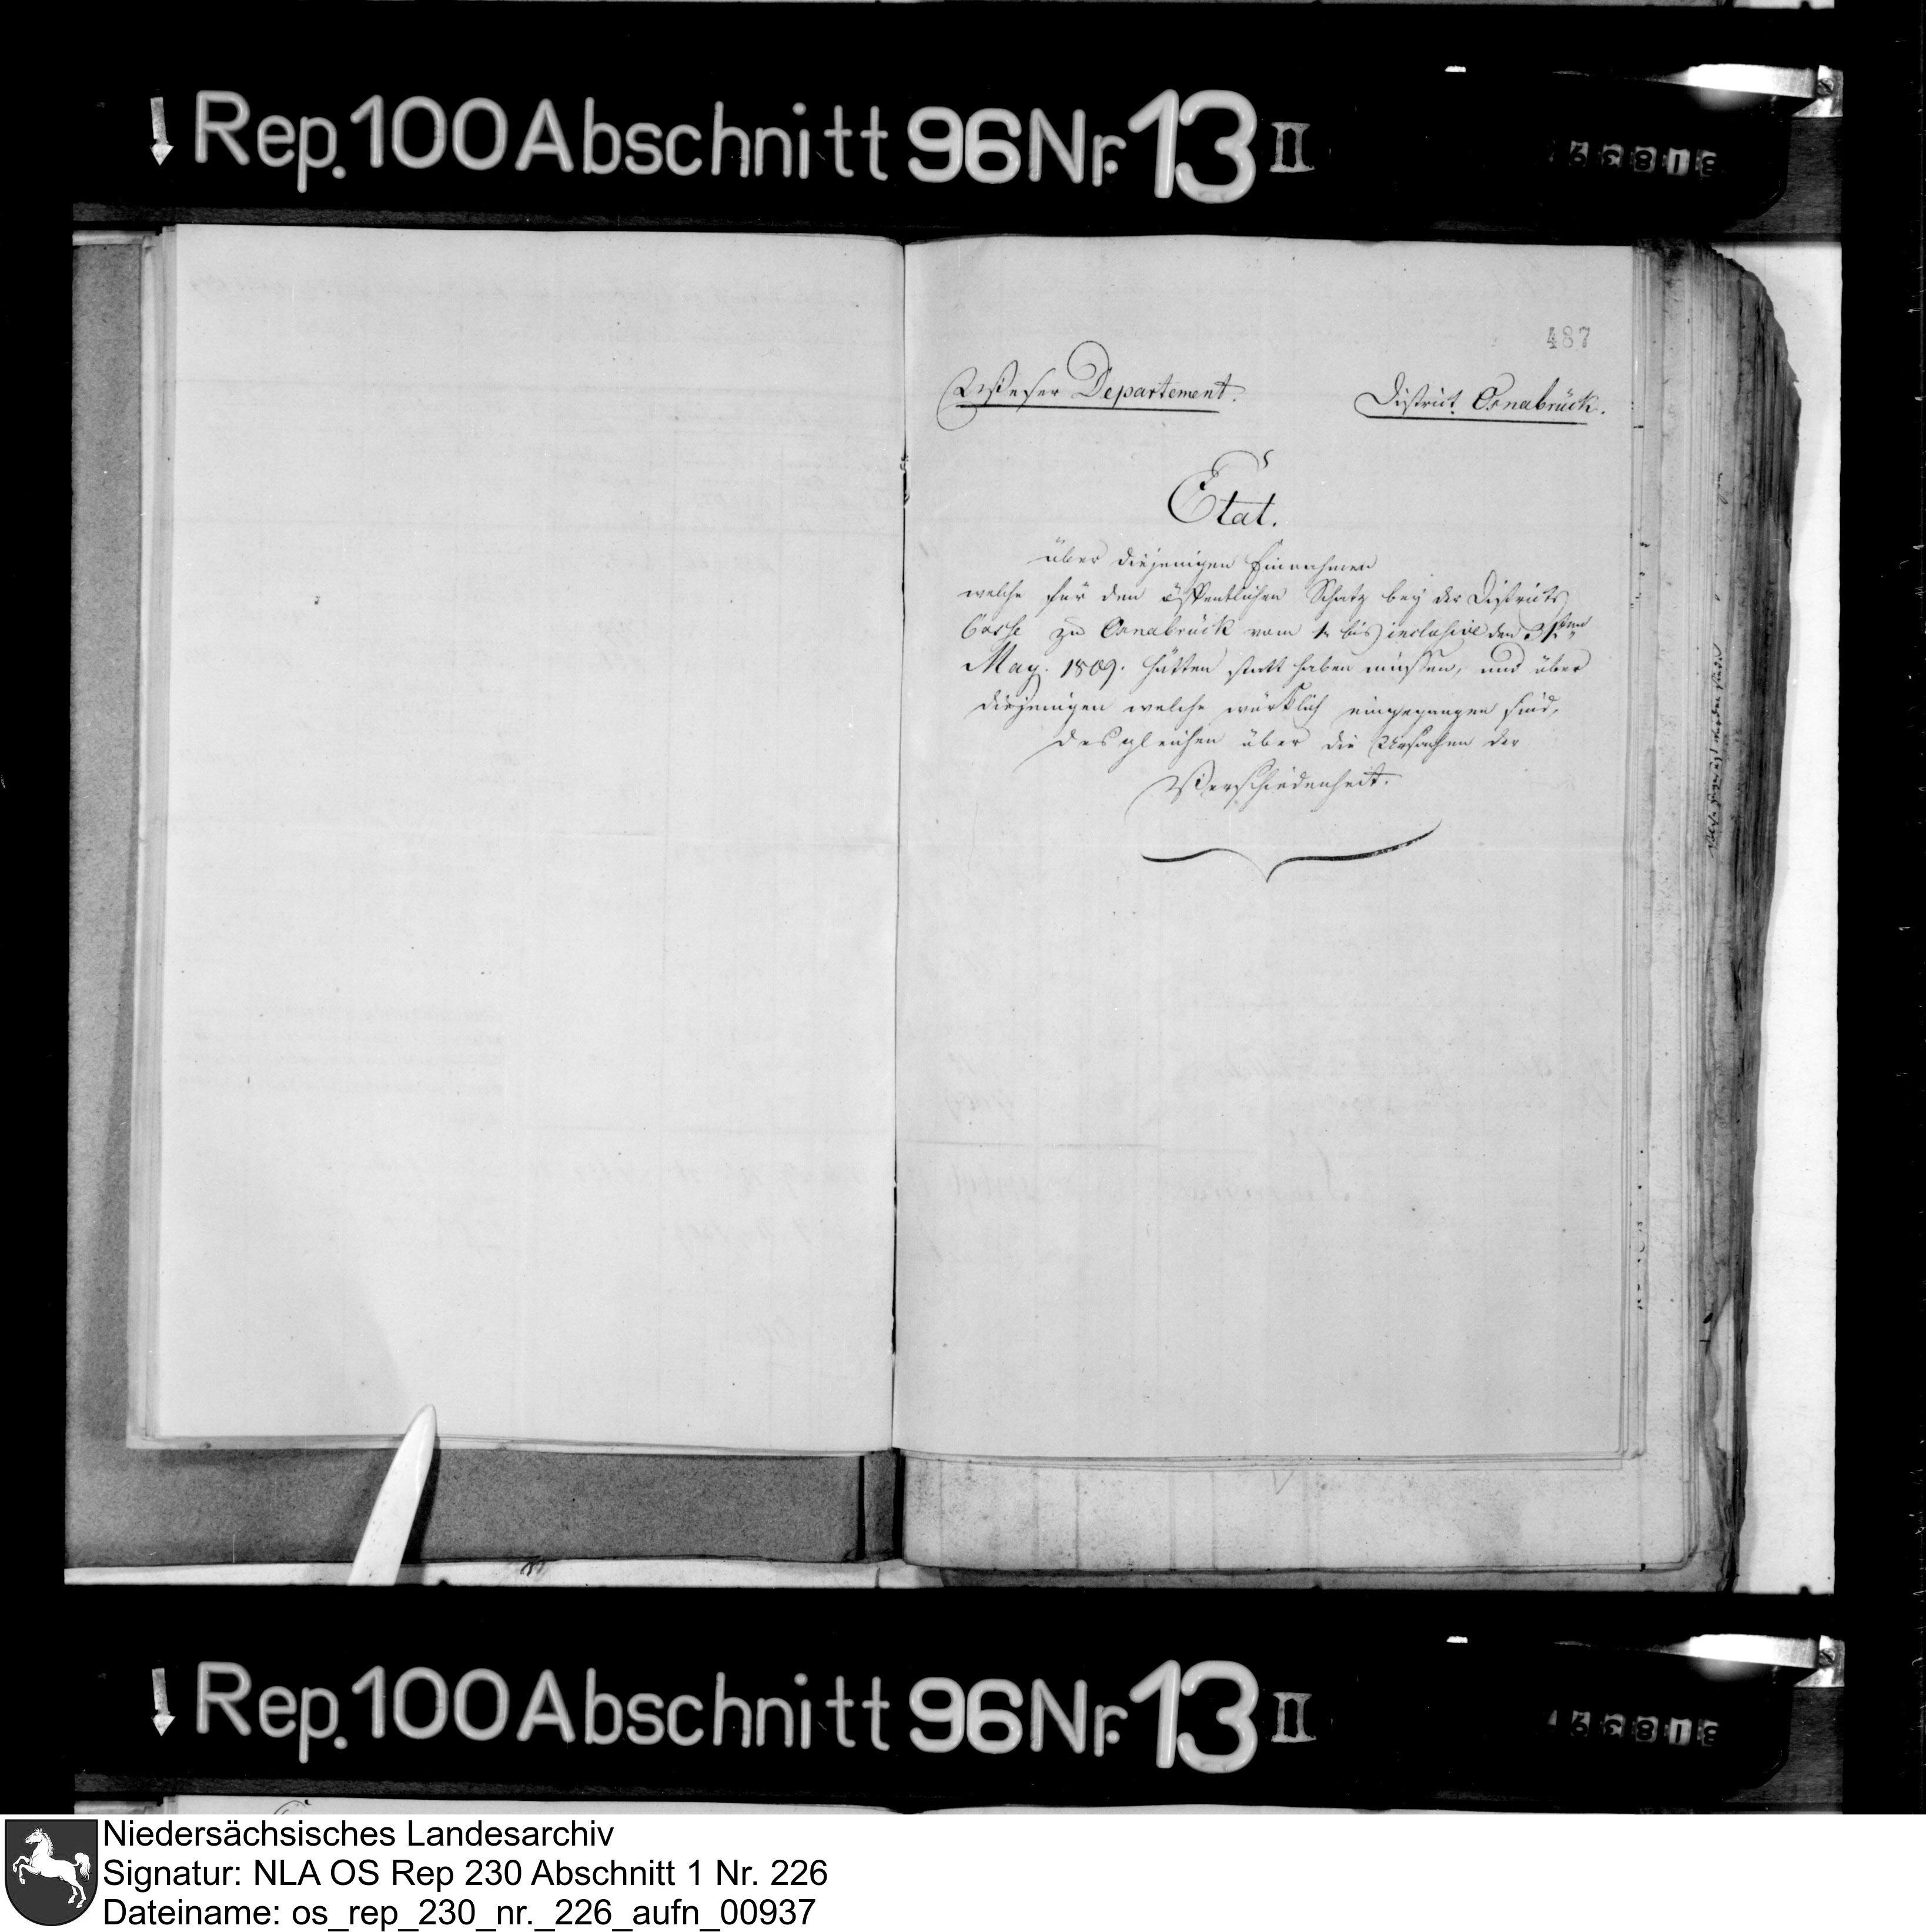 Rep. 100 Abschnitt 96 Nr. 13 II
31839
487
Weser Departement.
District Osnabrück.
Etat.
über diejenigen Einnahmen
welche für den öffentlichen Schatz bey der Districts
Casse zu Osnabrück vom 1n bis inclusive den 31ten
May. 1809. hätten statt haben müssen, und über
diejenigen welche würklich eingegangen sind,
desgleichen über die Ursachen der
Verschiedenheit.
Rep. 100 Abschnitt 96 Nr. 13 II
31839
Niedersächsisches Landesarchiv
Signatur: NLA OS Rep 230 Abschnitt 1 Nr. 226
Dateiname: os_rep_230_nr._226_aufn_00937